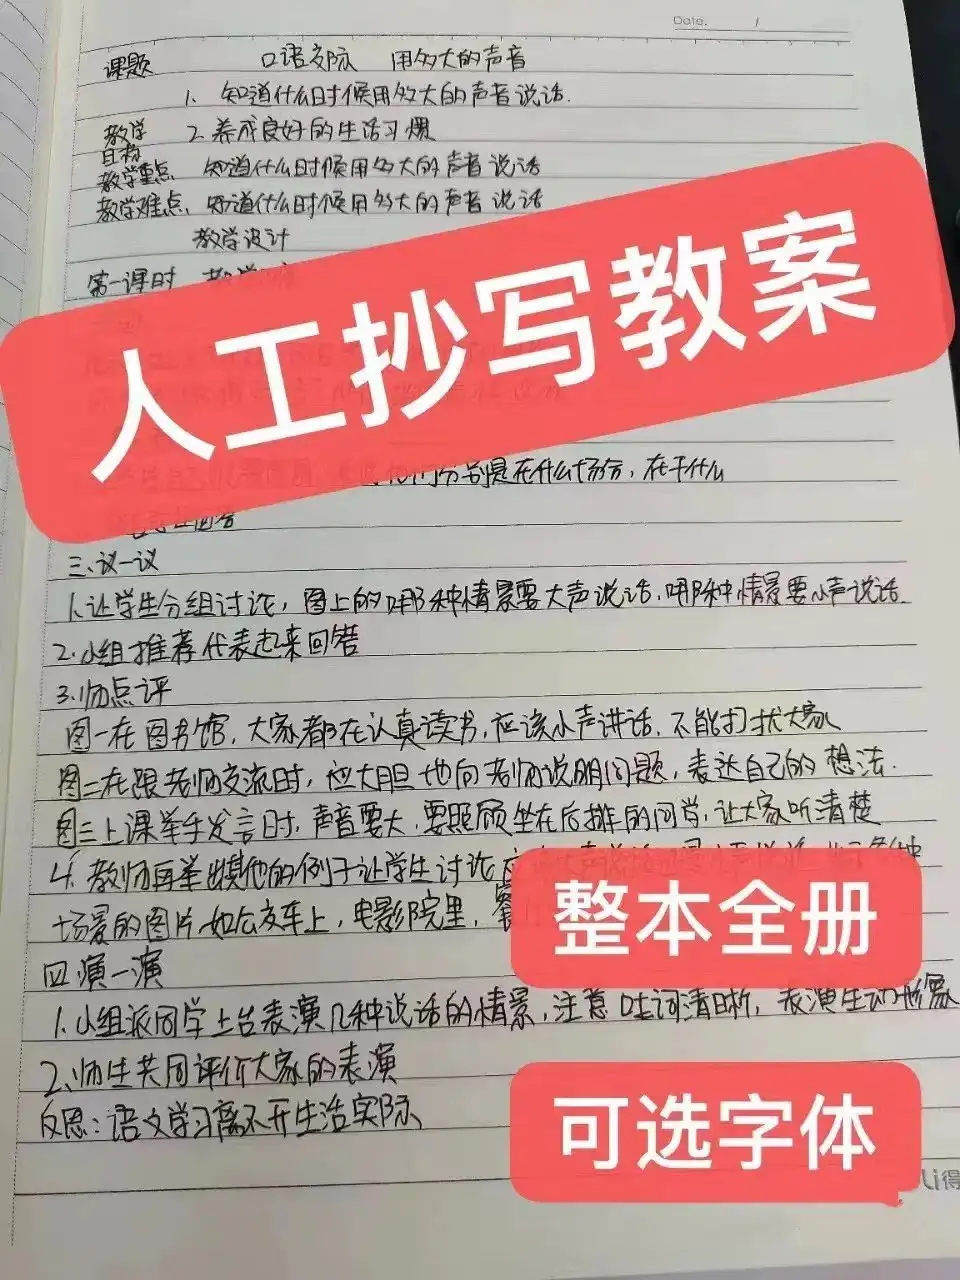 Date. /
课题 口语交际 用多大的声音
1. 知道什么时候用多大的声音说话.
教学目标 2.养成良好的生活习惯
教学重点 知道什么时候用多大的声音说话
教学难点、知道什么时候用多大的声音说话
教学设计
第一课时
人工抄写教案
分别是在什么场合,在干什么
三.议一议
1.让学生分组讨论,图上的哪种情景要大声说话,哪种情景要小声说话.
2.小组推荐代表起来回答
3.师点评
图一在图书馆,大家都在认真读书,应该小声讲话,不能打扰大家
图二在跟老师交流时,应大胆地向老师说明问题,表达自己的想法.
图三上课举手发言时,声音要大,要照顾坐在后排的同学,让大家听清楚
4.教师再举出其他的例子让学生讨论
场景的图片如公交车上,电影院里,
整本全册
四演一演
1.小组派同学上台表演几种说话的情景,注意吐词清晰,表演生动形象
2、师生共同评价大家的表演
反思:语文学习离不开生活实际
可选字体